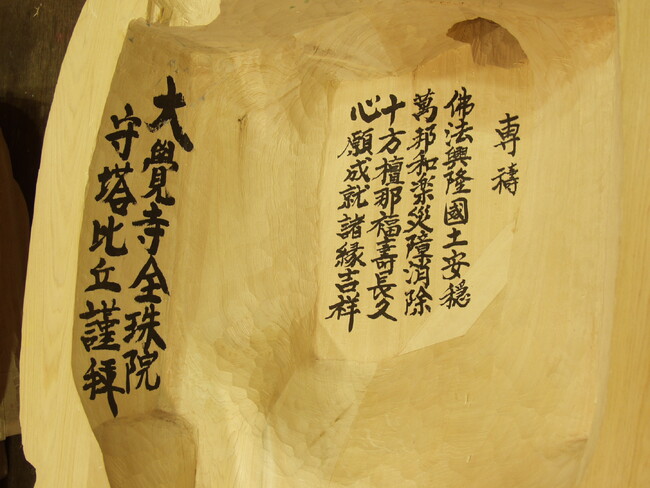 専祷
佛法興隆國土安穏
萬邦和楽災障消除
十方檀那福壽長久
心願成就諸縁吉祥
大覺寺全珠院
守塔比丘謹拜